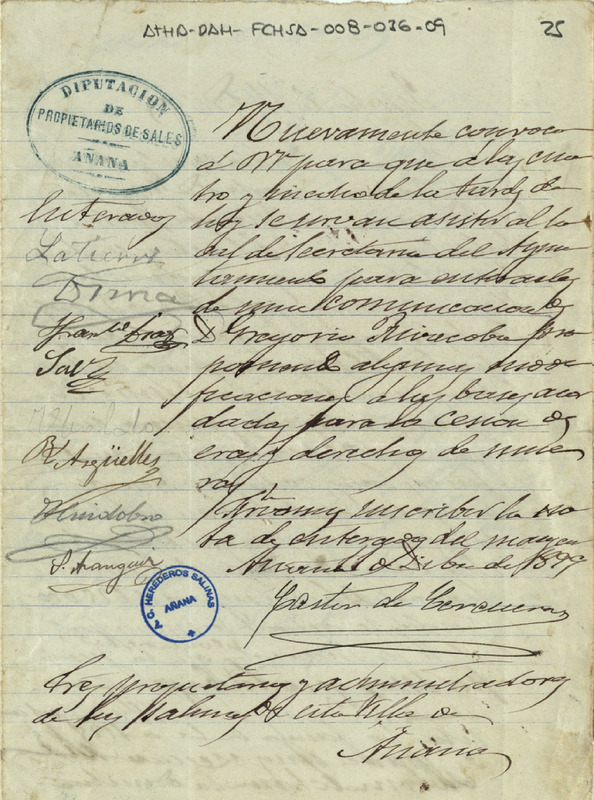 ATHA-DAH-FCHSA-008-036-09
25
DIPUTACION
DE
PROPIETARIOS DE SALES
AÑANA
Nuevamente convoco
á Vs para que á las cua
tro y media de la tarde de
hoy se sirvan asistir al lo
cal de secretaria del Ayun
tamiento para enterarles
de una comunicacion de
D Gregorio
poniendo algunas modi
ficaciones á las bases acor
dadas para la cesion de
eras y derechos de muera
ra
Sirvanse suscribir la no
ta de enterados del margen
Añana de 1899
Enterados
Dima
Saez
R. Argüelles
Huidobro
S. Aranguiz
Castor de
C. HEREDEROS SALINAS
AÑANA
Sres propietarios y administradores
de las Salinas de esta Villa de
Añana